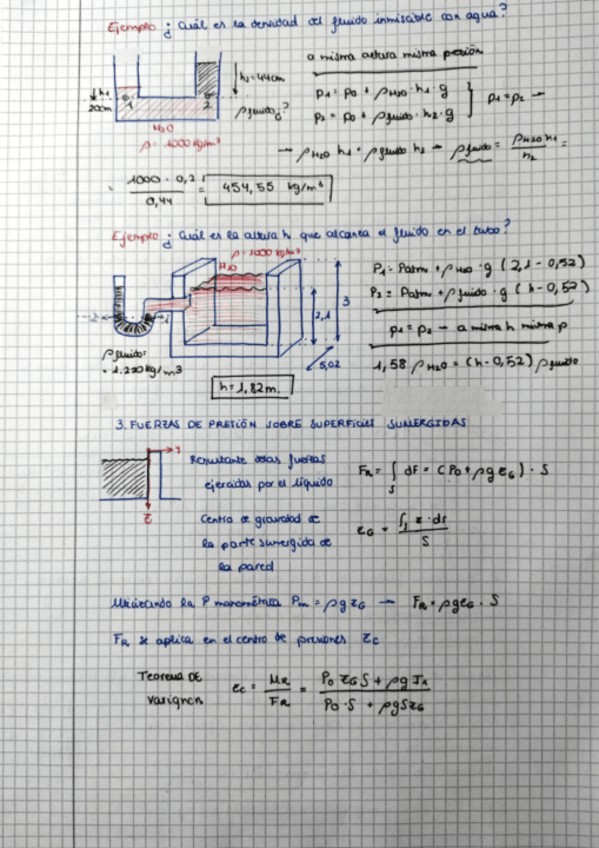 Ejemplo ¿Cuál es la densidad del fluido inmiscible con agua?
a misma altura misma presión
h₂=44cm
h₁
20cm
1
2
ρfluido?
H₂O
ρ = 1000 kg/m³
P₁ = P₀ + ρH₂O · h₁ · g
P₂ = P₀ + ρfluido · h₂ · g
P₁ = P₂ →
→ ρH₂O h₁ = ρfluido h₂ → ρfluido = ρH₂O h₁ / h₂ =
= 1000 · 0,2 / 0,44 = 454,55 kg/m³
Ejemplo ¿Cuál es la altura h que alcanza el fluido en el tubo?
ρ = 1000 kg/m³
H₂O
2
1
2,1
3
5,02
ρfluido =
= 1.220 kg/m³
h = 1,82 m.
P₁ = Patm + ρH₂O · g (2,1 - 0,52)
P₂ = Patm + ρfluido · g (h - 0,52)
P₁ = P₂ → a misma h misma p
1,58 ρH₂O = (h - 0,52) ρfluido
3. FUERZAS DE PRESIÓN SOBRE SUPERFICIES SUMERGIDAS
z
Resultante de las fuerzas
ejercidas por el líquido
FR = ∫s dF = (P₀ + ρg zG) · S
Centro de gravedad de
la parte sumergida de
la pared
zG = ∫s z · ds / S
Utilizando la P manométrica Pm = ρg zG → FR = ρg zG · S
FR se aplica en el centro de presiones zc
Teorema DE
Varignon
zc = MR / FR = P₀ zG S + ρg Ix / P₀ · S + ρg S zG